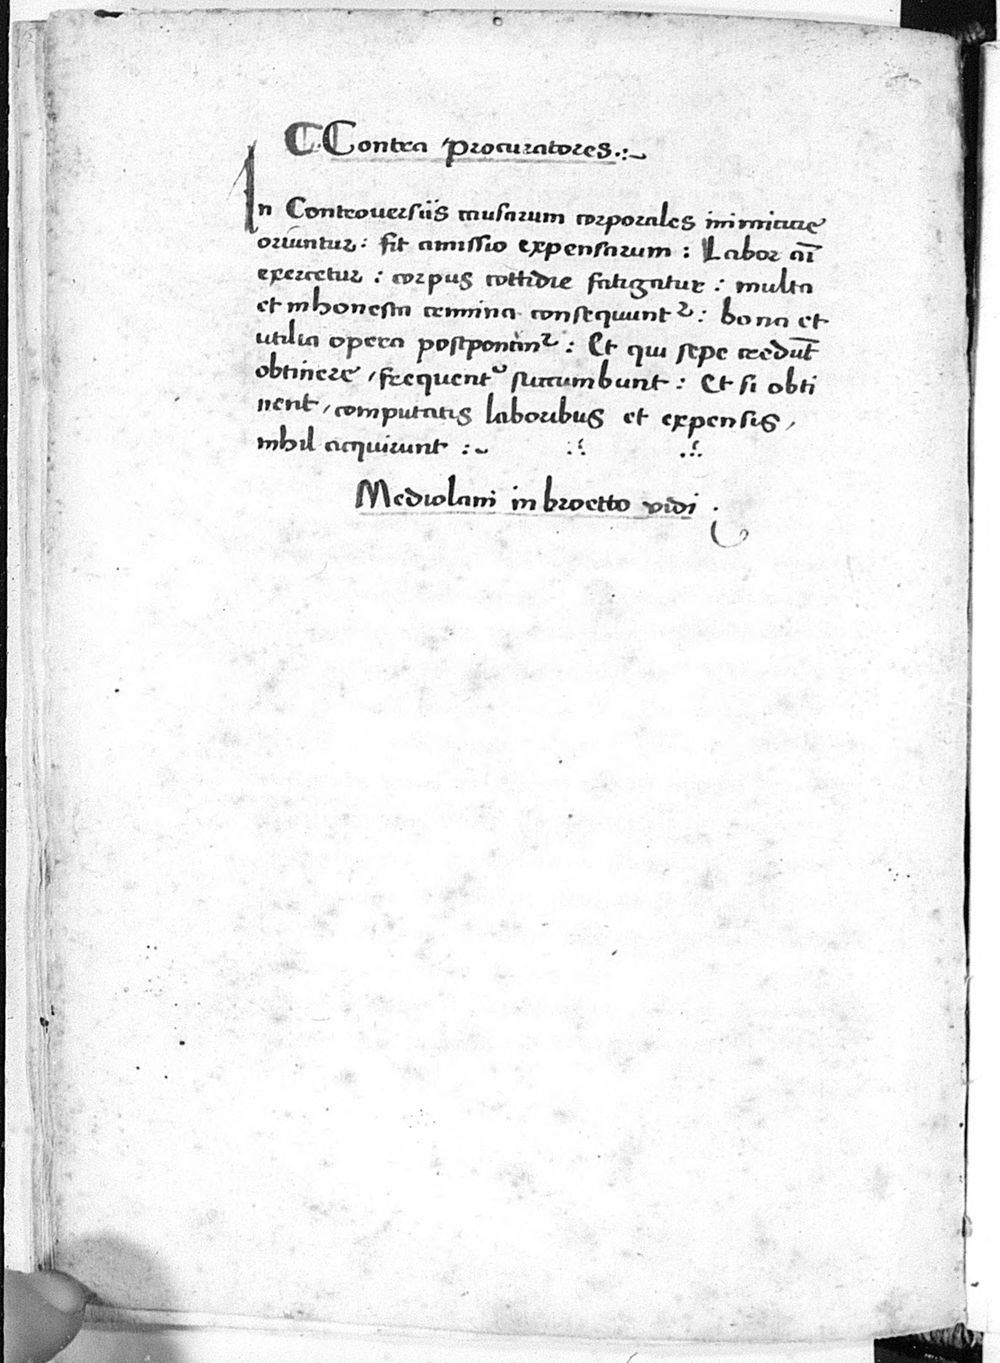 C. Contra procuratores .:~
In Controuersiis causarum corporales inimicitie
oriuntur : fit amissio expensarum : Labor aĩ
exercetur : corpus cottidie fatigatur : multa
et inhonesta crimina consequunt² : bona et
utilia opera postponũn² : Et qui sepe credũt
obtinere , frequentᵉ succumbunt : Et si obti
nent , computatis laboribus et expensis ,
nihil acquirunt :~
Mediolani in broetto vidi .